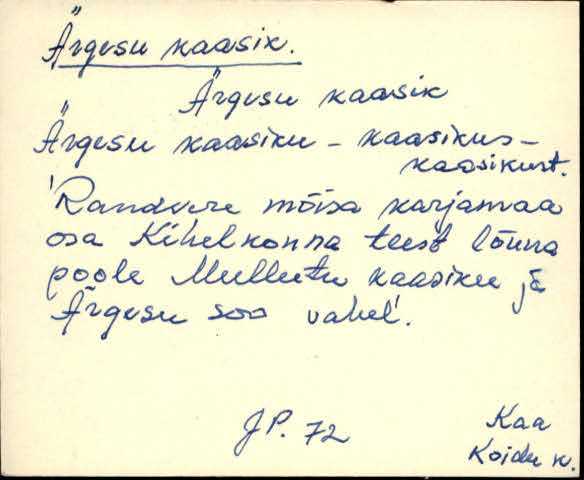 Ärgesu kaasik.
Ärgesu kaasik
Ärgesu kaasiku – kaasikus –
kaasikust.
'Randvere mõisa karjamaa
osa Kihelkonna teest lõuna
poole Mullutu kaasiku ja
Ärgesu soo vahel'.
JP. 72
Kaa
Koidu k.